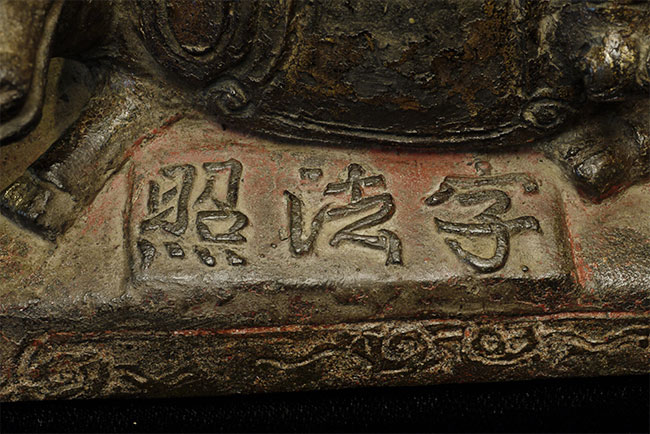 字法照